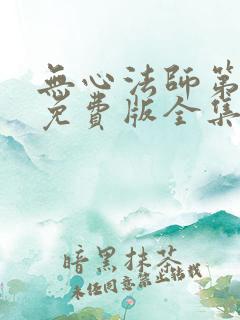 無心法師第
免費版全集
暗黑抹茶
未經同意禁止轉載